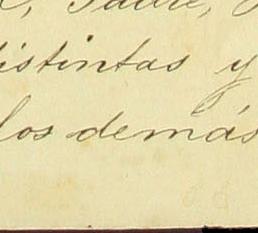 distintas y
los demás